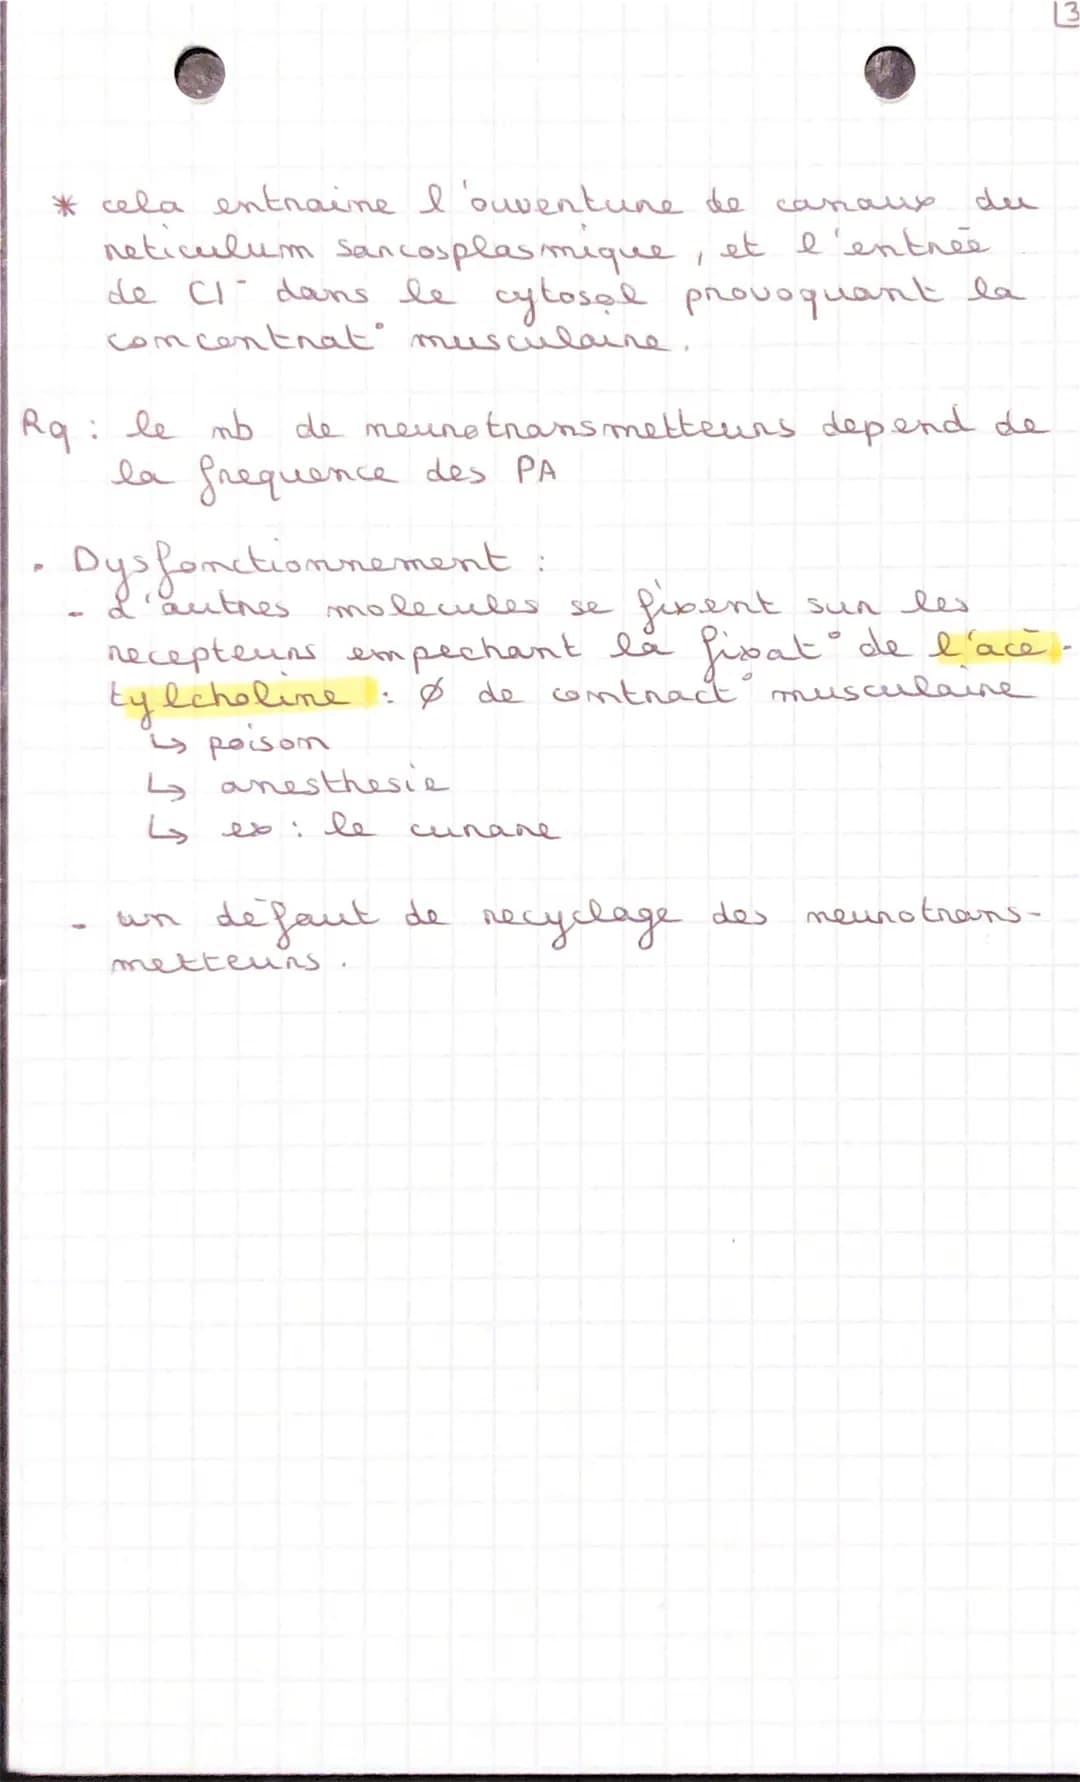 13
* cela entraine l'ouverture de canaux du
reticulum sarcosplasmique, et l'entrée
de Cl⁻ dans le cytosol provoquant la
concentrat° musculaire.
Rq : le nb de neurotransmetteurs depend de
la frequence des PA
• Dysfonctionnement :
- d'autres molecules se fixent sur les
recepteurs empechant la fixat° de l'acé-
tylcholine : Ø de contract° musculaire
↳ poison
↳ anesthesie
↳ ex : le curare
- un défaut de recyclage des neurotrans-
metteurs.